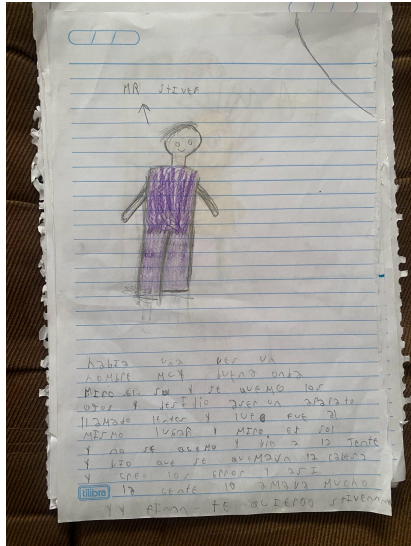 MR STIVER
habia una ves un
hombre muy buena onda
Miro el sol y se quemo los
ojos y desidio aser un aparato
llamado y fue al
mismo lugar y miro el sol
y no se quemo y bio a la jente
y bio que se quemava la cabesa
y creo los y asi
la jente lo amava mucho
tilibra
y y te quieron stiven